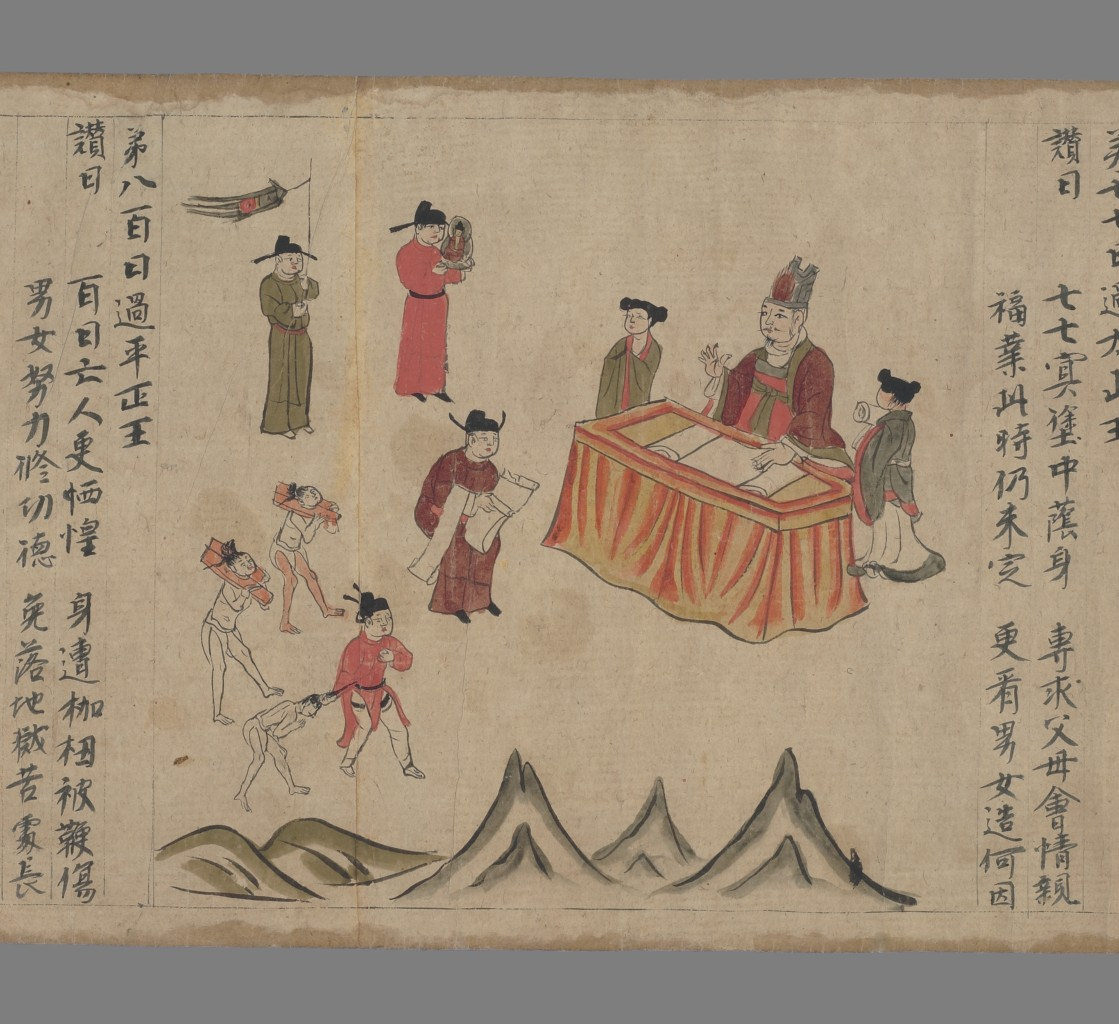 弟七七日過太山王
讚曰 七七冥塗中蔭身 專求父母會情親
福業此時仍未定 更看男女造何因
弟八百日過平正王
讚曰 百日亡人更恓惶 身遭枷杻被鞭傷
男女努力修功德 免落地獄苦處長